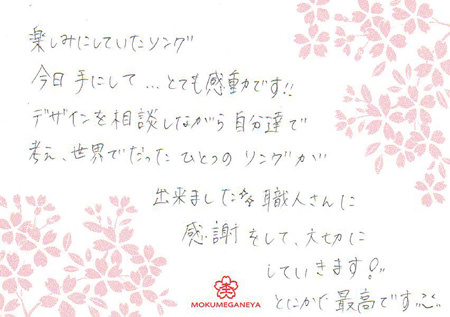 楽しみにしていたリング
今日手にして...とても感動です!!
デザインを相談しながら自分達で
考え、世界でだったひとつのリングが
出来ました☆☆職人さんに
感謝をして、大切に
していきます!!
とにかく最高です
MOKUMEGANEYA